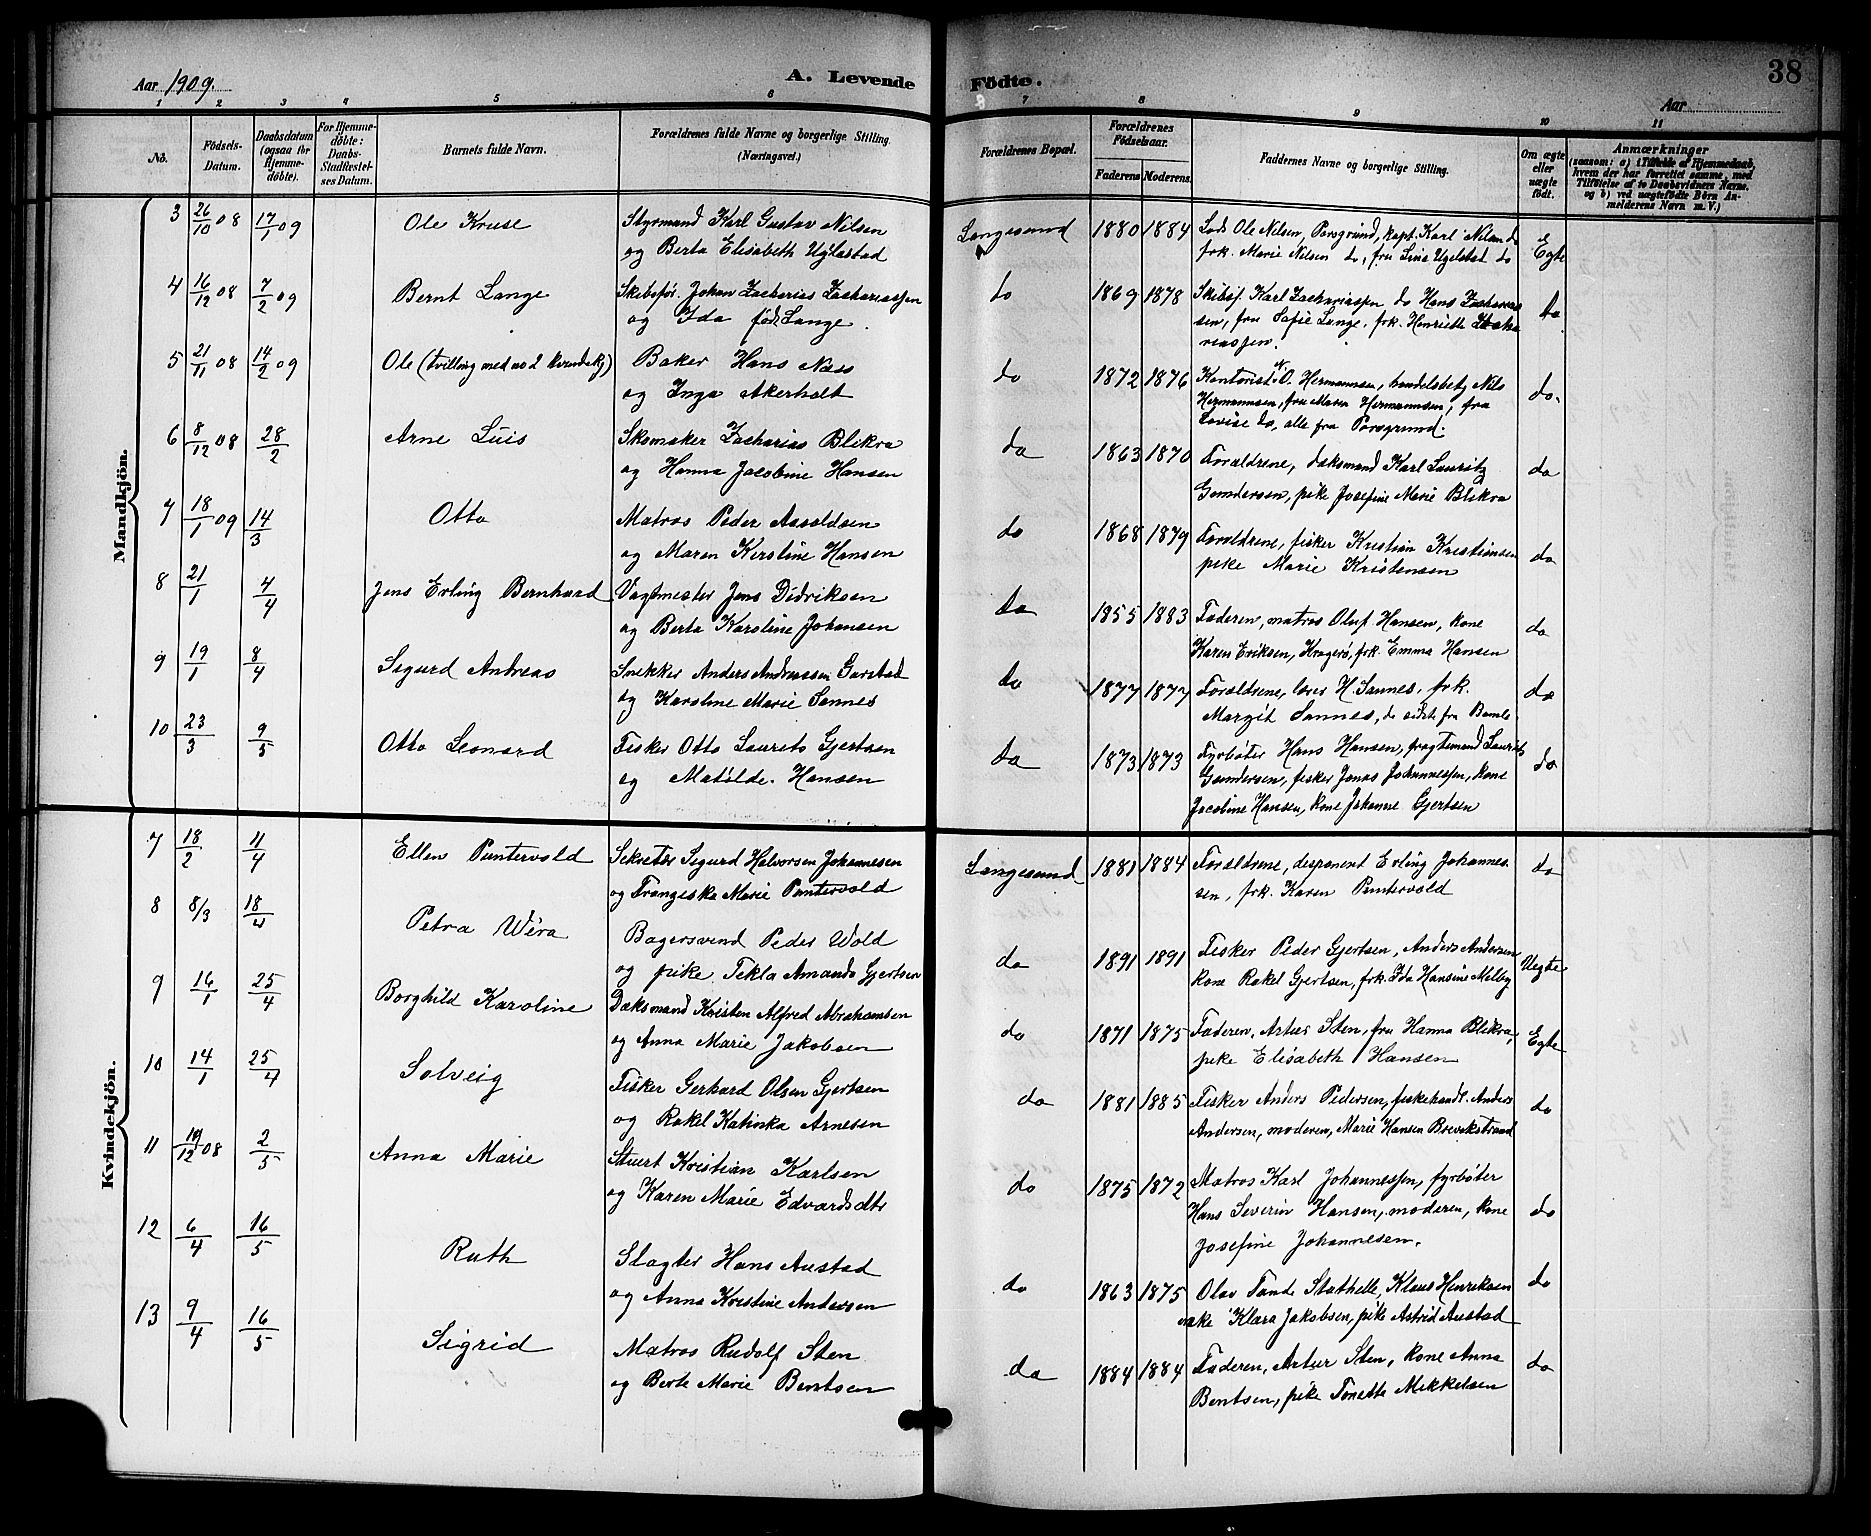 Aar 1909.
A. Levende
Födte.
38
Aar
1 2 3 4 5 6 7 8 9 10 11
No.
Födsels-Datum.
Daabsdatum (ogsaa for Hjemme-döbte).
For Hjemme-döbte: Daabs-Stadfæstel-ses Datum.
Barnets fulde Navn.
Forældrenes fulde Navne og borgerlige Stilling. (Næringsvei.)
Forældrenes Bopæl.
Forældrenes Födselsaar.
Faderens Moderens.
Faddernes Navne og borgerlige Stilling.
Om ægte eller uægte födt.
Anmærkninger
(saasom: a) i Tilfælde af Hjemmedaab, hvem der har forrettet samme, med Tilföielse af to Daabsvidners Navne, og b) ved uægtefödte Börn An-melderens Navn m. V.)
Mandkjön.
3 26/10 08 17/1 09 Ole Kruse Styrmand Karl Gustav Nilsen Langesund 1880 1884 Lods Ole Nilsen, Porsgrund, kapt. Karl Nilsen do Egte
og Berta Elisabeth Uglestad frk. Marie Nilsen do, fru Lina Ugelstad do
4 16/12 08 7/2 09 Bernt Lange Skibsför. Johan Zacharias Zachariassen do 1869 1878 Skibsf. Karl Zachariassen do Hans Zacharias do
og Ida föd Lange. sen, fru Sofie Lange, frk. Henriette Zacha
riassen.
5 21/11 08 14/2 09 Ole (tvilling med no 2 kvindekj) Baker Hans Næss do 1872 1876 Kontorist O. Hermannsen, handelsbetj Nils do.
og Inga Akerholt Hermannsen, fru Maren Hermannsen, fru
Lovise do, alle fra Porsgrund.
6 8/12 08 28/2 Arne Luis Skomaker Zacharias Blikra do 1863 1870 Forældrene, dæksmand Karl Lauritz do
og Hanna Jacobine Hansen Gundersen, pike Josefine Marie Blikra
7 18/1 09 14/3 Otto Matros Peder Aasoldsen do 1868 1879 Forældrene, fisker Kristian Kristiansen do
og Maren Kirstine Hansen pike Marie Kristensen
8 21/1 4/4 Jens Erling Bernhard Vagtmester Jens Didriksen do 1855 1883 Faderen, matros Oluf Hansen, kone do
og Berta Karoline Johansen Karen Eriksen, Kragerö, frk. Emma Hansen
9 19/1 8/4 Sigurd Andreas Snekker Anders Andreassen Garstad do 1877 1877 Forældrene, lærer H. Sannes, frk. do
og Karoline Marie Sannes Margit Sannes, de sidste fra Bamle
10 23/3 9/5 Otto Leonard Fisker Otto Laurits Gjertsen do 1873 1873 Fyrböter Hans Hansen, fragtemand Laurits do
og Matilde Hansen Gundersen, fisker Jonas Johannessen, kone
Jacobine Hansen, kone Johanne Gjertsen
Kvindekjön.
7 18/2 11/4 Ellen Puntervold Sekretær Sigurd Halvorsen Johannesen Langesund 1881 1884 Forældrene, disponent Erling Johannes do
og Frangeska Marie Puntervold sen, frk. Karen Puntervold
8 8/3 18/4 Petra Wera Bagersvend Peder Wold do 1891 1891 Fisker Peder Gjertsen, Anders Andersen Uegte
og pike Tekla Amanda Gjertsen kone Rakel Gjertsen, frk. Ida Hansine Melby
9 16/1 25/4 Borghild Karoline Dæksmand Kristen Alfred Abrahamsen do 1871 1875 Faderen, Artur Sten, fru Hanna Blikra, Egte
og Anna Marie Jakobsen pike Elisabeth Hansen
10 14/1 25/4 Solveig Fisker Gerhard Olsen Gjertsen do 1881 1885 Fisker Anders Pedersen, fiskehandl. Anders do
og Rakel Katinka Arnesen Andersen, moderen, Marie Hansen Brevikstrand
11 19/12 08 2/5 Anna Marie Stuert Kristian Karlsen do 1875 1872 Matros Karl Johannessen, fyrböter
og Karen Marie Edvardsdtr Hans Severin Hansen, moderen, kone do
Josefine Johannesen.
12 6/4 16/5 Ruth Slagter Hans Austad do 1863 1875 Olav Tande Stathelle, Klaus Henriksen do
og Anna Kristine Andersen Klara Jakobsen, pike Astrid Austad
13 9/4 16/5 Sigrid Matros Rudolf Sten do 1884 1884 Faderen, Artur Sten, kone Anna do
og Berte Marie Bentsen Bentsen, pike Tonette Mikkelsen